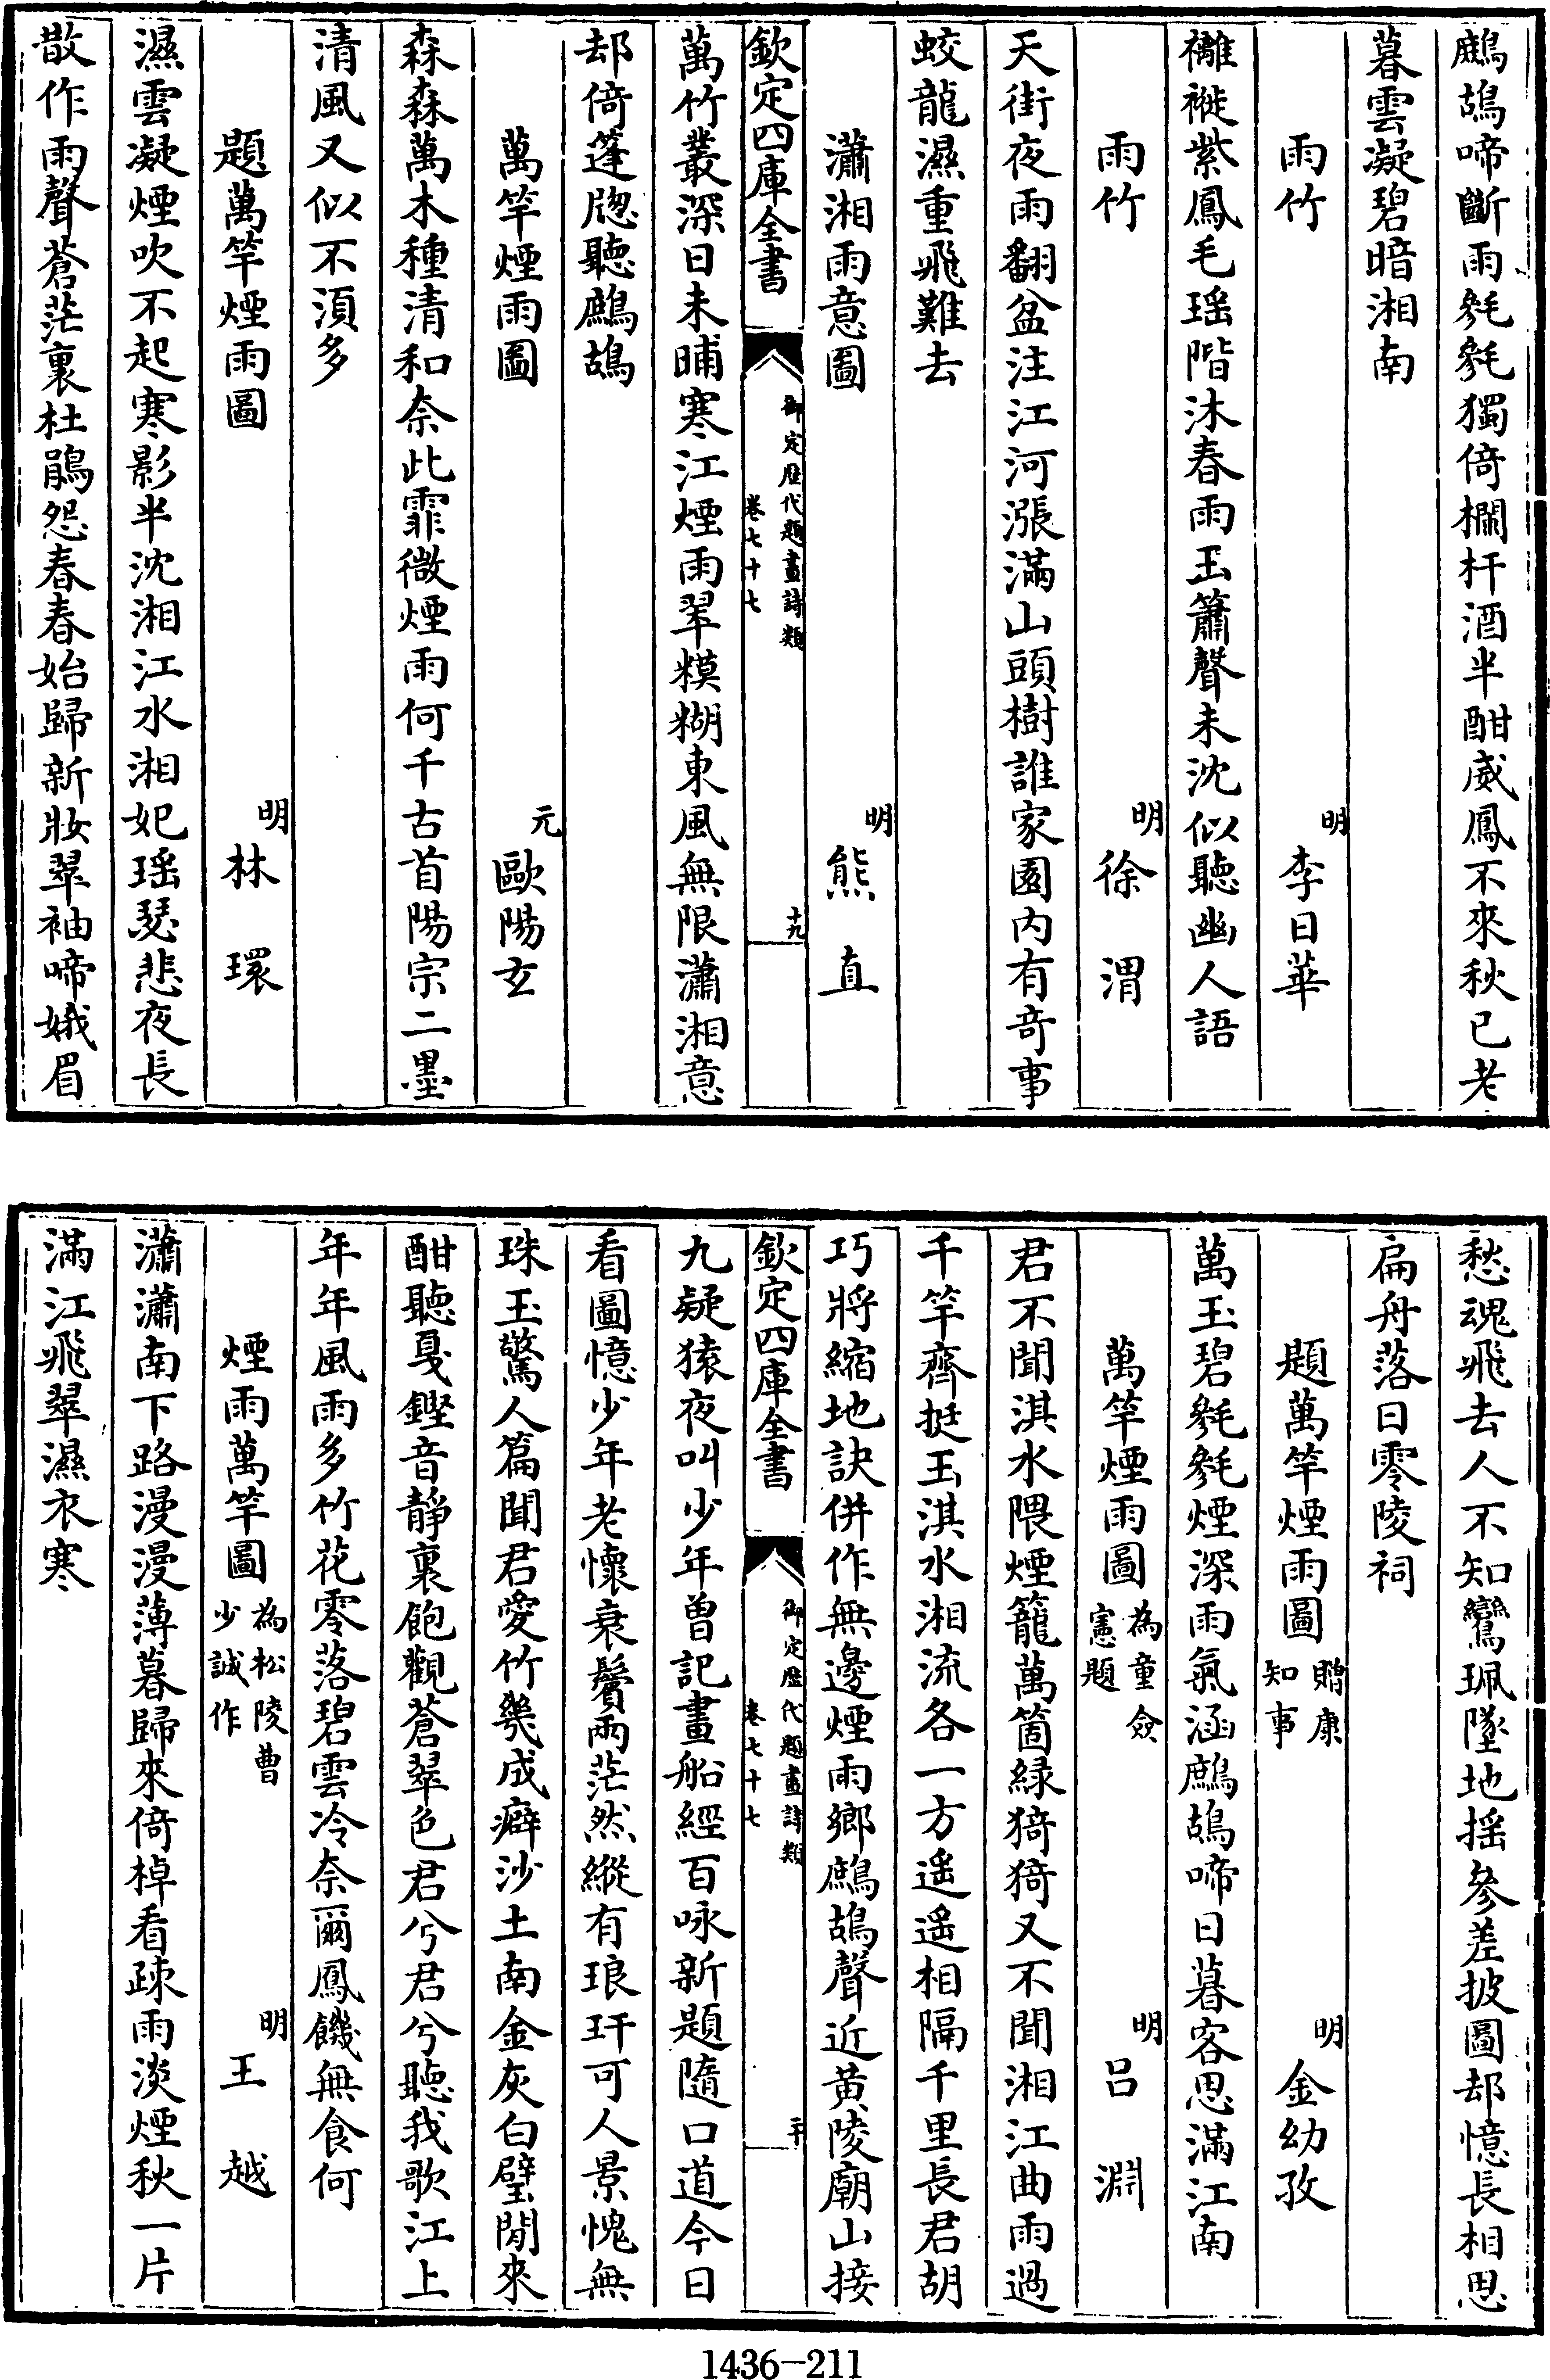 鷓鴣啼斷雨毿毿獨倚欄杆酒半酣威鳳不來秋已老
暮雲凝碧暗湘南
雨竹
明李日華
褵褷紫鳳毛瑶階沐春雨玉簫聲未沈似聽幽人語
雨竹
明徐渭
天街夜雨翻盆注江河漲滿山頭樹誰家園内有竒事
蛟龍濕重飛難去
瀟湘雨意圖
明熊直
欽定四庫全書
御定歴代題畫詩類
卷七十七
十九
萬竹叢深日未晡寒江煙雨翠糢糊東風無限瀟湘意
却倚篷牕聽鷓鴣
萬竿煙雨圖
元歐陽玄
森森萬木種清和奈此霏微煙雨何千古首陽宗二墨
清風又似不須多
題萬竿煙雨圖
明林環
濕雲凝煙吹不起寒影半沈湘江水湘妃瑶瑟悲夜長
散作雨聲蒼茫裏杜鵑怨春春始歸新妝翠袖啼娥眉
愁魂飛去人不知鸞珮墜地揺參差披圖却憶長相思
扁舟落日零陵祠
題萬竿煙雨圖贈康知事
明金幼孜
萬玉碧毿毿煙深雨氣涵鷓鴣啼日暮客思滿江南
萬竿煙雨圖為童僉憲題
明吕淵
君不聞淇水隈煙籠萬箇緑猗猗又不聞湘江曲雨過
千竿齊挺玉淇水湘流各一方遥遥相隔千里長君胡
巧將縮地訣併作無邊煙雨鄉鷓鴣聲近黄陵廟山接
欽定四庫全書
御定歴代題畫詩類
卷七十七
二十
九疑猿夜叫少年曽記畫船經百咏新題隨口道今日
看圖憶少年老懷衰鬢兩茫然縱有琅玕可人景愧無
珠玉驚人篇聞君愛竹幾成癖沙土南金灰白璧閒來
酣聽戛鏗音靜裏飽觀蒼翠色君兮君兮聽我歌江上
年年風雨多竹花零落碧雲冷奈爾鳳饑無食何
煙雨萬竿圖為松陵曹少誠作
明王越
瀟瀟南下路漫漫薄暮歸來倚棹看疎雨淡煙秋一片
滿江飛翠濕衣寒
1436-211